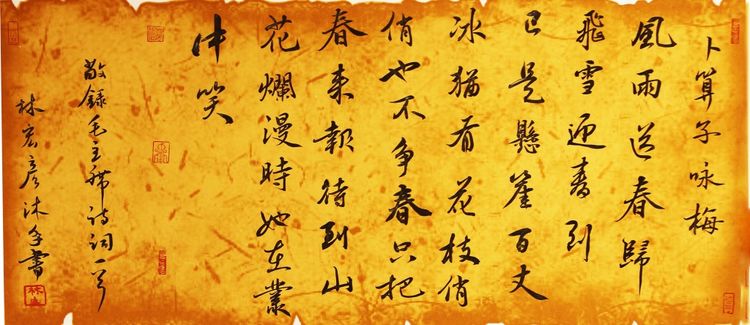 卜算子咏梅
風雨送春歸
飛雪迎春到
已是懸崖百丈
冰猶有花枝俏
俏也不争春只把
春来報待到山
花爛漫時她在叢
中笑
敬録毛主席詩詞一首
林宏彦沐手書